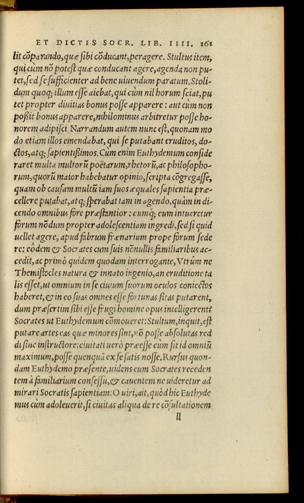 ET DICTIS SOCR. LIB. IIII. 261
lit cōparando, quæ sibi cōducant, peragere. Stultus item,
qui cùm nō potest quæ conducant agere, agenda non pu-
tet, sed se sufficienter ad bene uiuendum paratum, Stoli-
dum quoq; illum esse aiebat, qui cùm nil horum sciat, pu
tet propter diuitias bonus posse apparere: aut cùm non
possit bonus apparere, nihilominus arbitretur posse ho-
norem adipisci. Narrandum autem nunc est, quonam mo
do etiam illos emendabat, qui se putabant eruditos, do-
ctos, atq; sapientissimos. Cùm enim Euthydemum conside
raret multa multorū poëtarum, rhetorū, ac philosopho-
rum, quorū maior habebatur opinio, scripta cōgregasse,
quam ob causam multū iam suos æquales sapientia præ-
cellere putabat, atq; sperabat tam in agendo, quàm in di-
cendo omnibus fore præstantior: cumq; eum intueretur
forum nōdum propter adolescentiam ingredi, sed si quid
uellet agere, apud fabrum frænarium prope forum sede
re: eódem & Socrates cum suis nōnullis familiaribus ac-
cedit, ac primò quidem quodam interrogante, Vtrùm ne
Themistocles natura & innato ingenio, an eruditione ta
lis esset, ut omnium in se ciuium suorum oculos coniectos
haberet, & in eo suas omnes esse fortunas sitas putarent,
dum præsertim sibi esse frugi homine opus intelligerent?
Socrates ut Euthydemum cōmoueret: Stultum, inquit, est
putare artes eas quæ minores sint, nō posse absolutas red
di sine instructore: ciuitati uerò præesse cùm sit id omniū
maximum, posse quenquā ex se satis nosse. Rursus quon-
dam Euthydemo præsente, uidens eum Socrates receden
tem à familiarium consessu, & cauentem ne uideretur ad
mirari Socratis sapientiam: O uiri, ait, quòd hic Euthyde
mus cùm adoleuerit, si ciuitas aliqua de re cōsultationem
ll